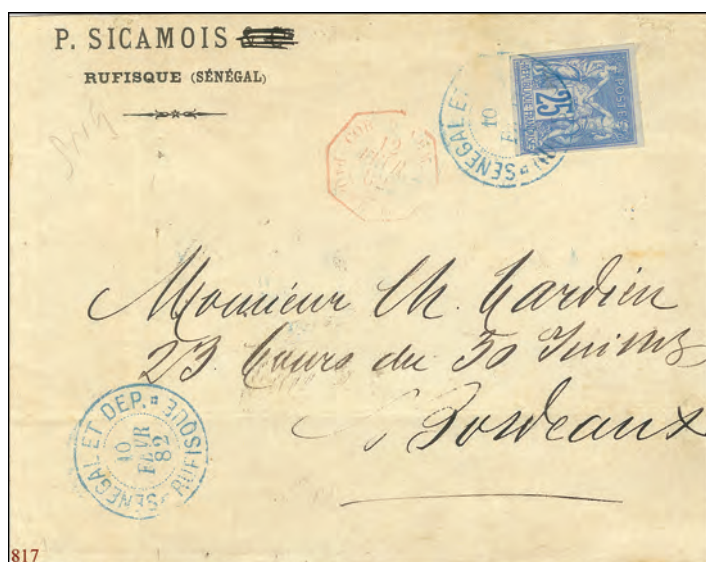 P. SICAMOIS
RUFISQUE (SÉNÉGAL)
POSTES
25
RÉPUBLIQUE FRANÇAISE
SENEGAL ET
10
12
Monsieur Ch. Cardien
23. Cours du 30 Juillet
Bordeaux
SENEGAL ET DEP.
RUFISQUE
10
FEVR
82
817